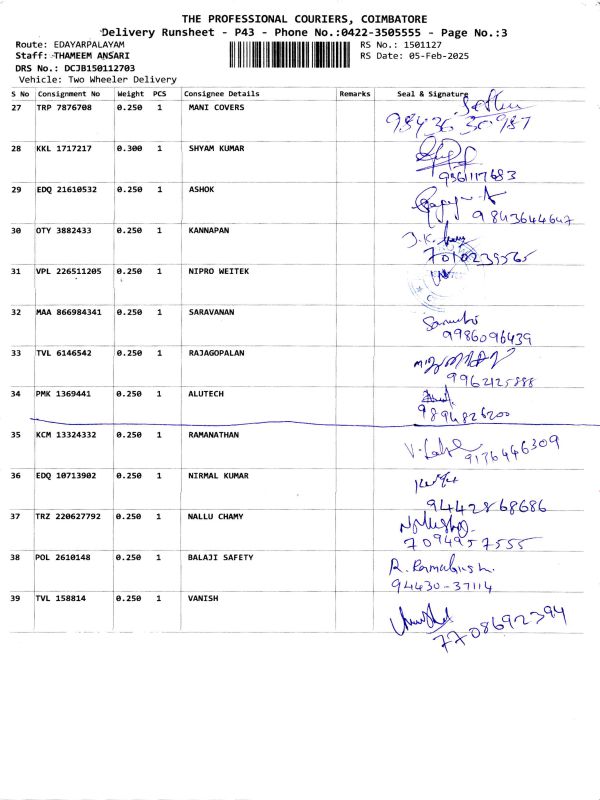 THE PROFESSIONAL COURIERS, COIMBATORE
Delivery Runsheet - P43 - Phone No.:0422-3505555 - Page No.:3
Route: EDAYARPALAYAM RS No.: 1501127
Staff: THAMEEM ANSARI RS Date: 05-Feb-2025
DRS No.: DCJB150112703
Vehicle: Two Wheeler Delivery
S No Consignment No Weight PCS Consignee Details Remarks Seal & Signature
27 TRP 7876708 0.250 1 MANI COVERS
98436 36987
28 KKL 1717217 0.300 1 SHYAM KUMAR
9361117683
29 EDQ 21610532 0.250 1 ASHOK
9843644647
30 OTY 3882433 0.250 1 KANNAPAN
7010239565
31 VPL 226511205 0.250 1 NIPRO WEITEK
32 MAA 866984341 0.250 1 SARAVANAN
9986096439
33 TVL 6146542 0.250 1 RAJAGOPALAN
9962125888
34 PMK 1369441 0.250 1 ALUTECH
9894826200
35 KCM 13324332 0.250 1 RAMANATHAN
9176446309
36 EDQ 10713902 0.250 1 NIRMAL KUMAR
9442868686
37 TRZ 220627792 0.250 1 NALLU CHAMY
7094957555
38 POL 2610148 0.250 1 BALAJI SAFETY
94430-37114
39 TVL 158814 0.250 1 VANISH
7708692394